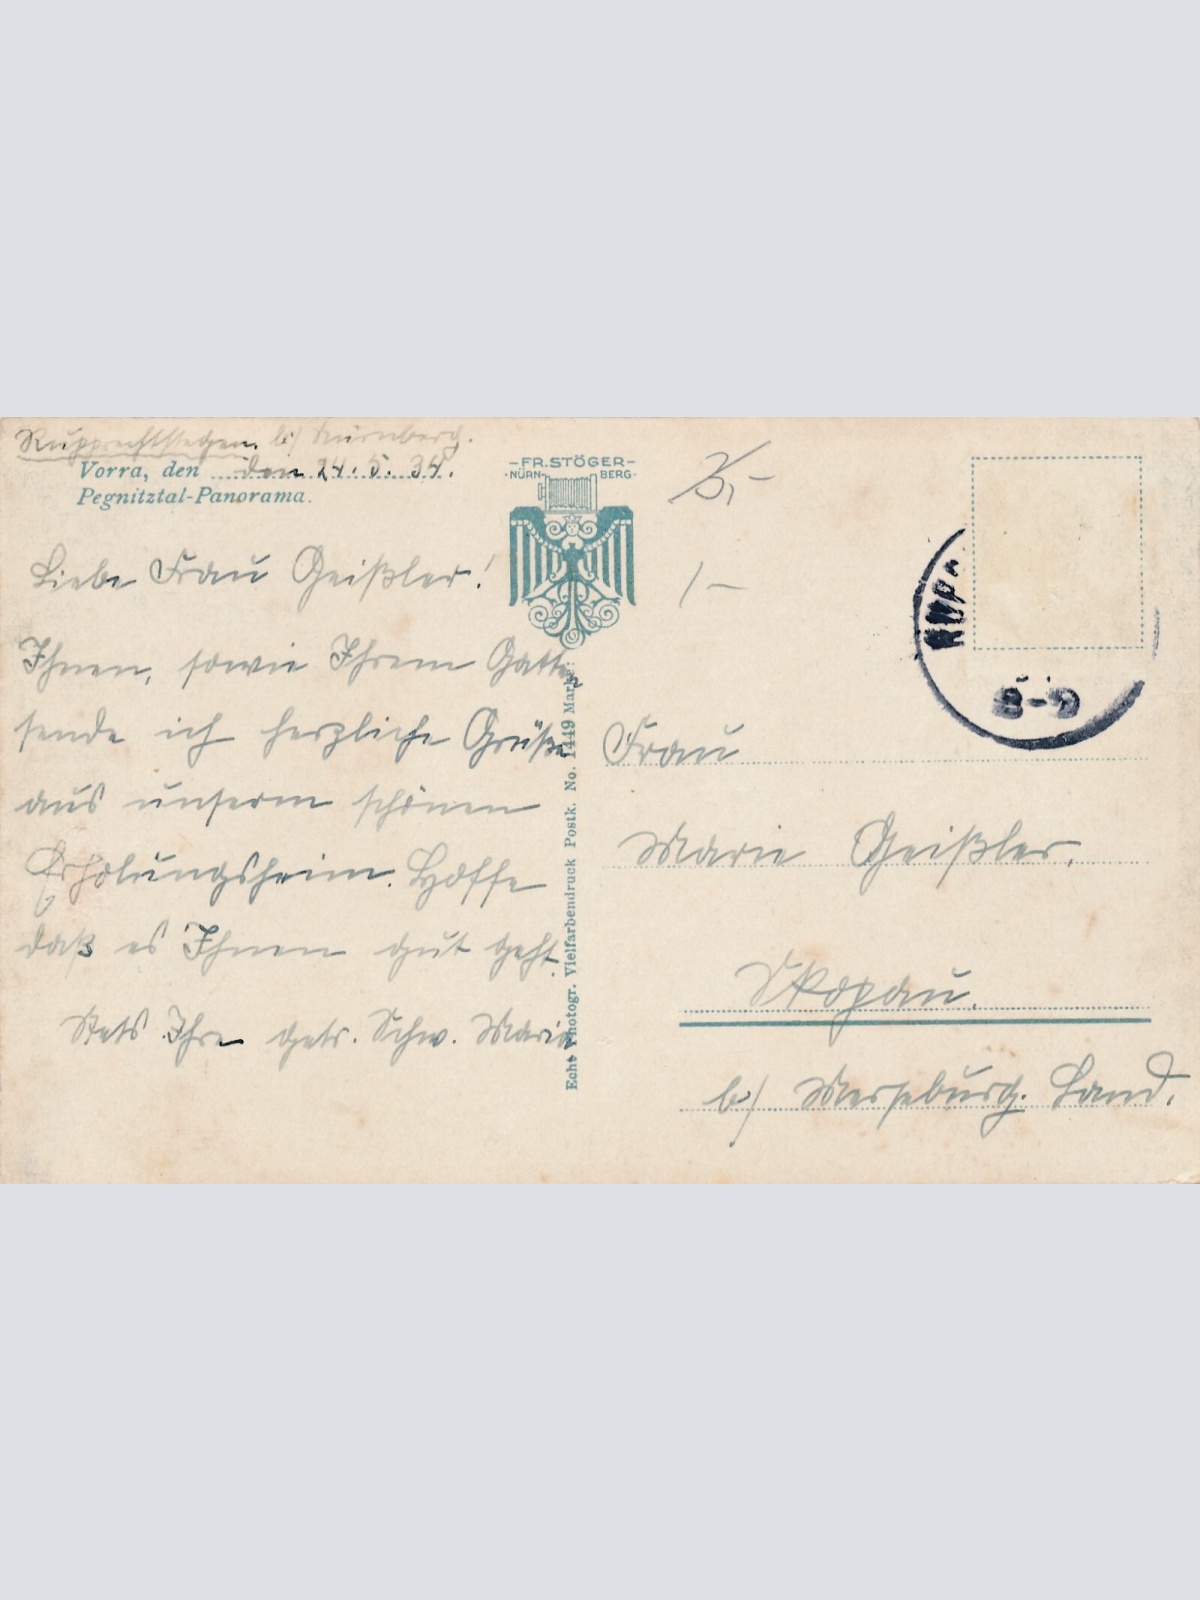 Rupprechtstegen. b/ Nürnberg.
Vorra, den den 24. 5. 34.
Pegnitztal-Panorama.
Liebe Frau Geißler!
Ihnen, sowie Ihrem Gatten
sende ich herzliche Grüße
aus unserem schönen
Erholungsheim. Hoffe
daß es Ihnen gut geht.
Stets Ihre getr. Schw. Maria
FR. STÖGER
NÜRN- BERG
Echt Photogr. Vielfarbendruck Postk. No. 1449 Marke:
1 -
8-9
Frau
Marie Geißler.
Skopau.
b/ Merseburg. Land.